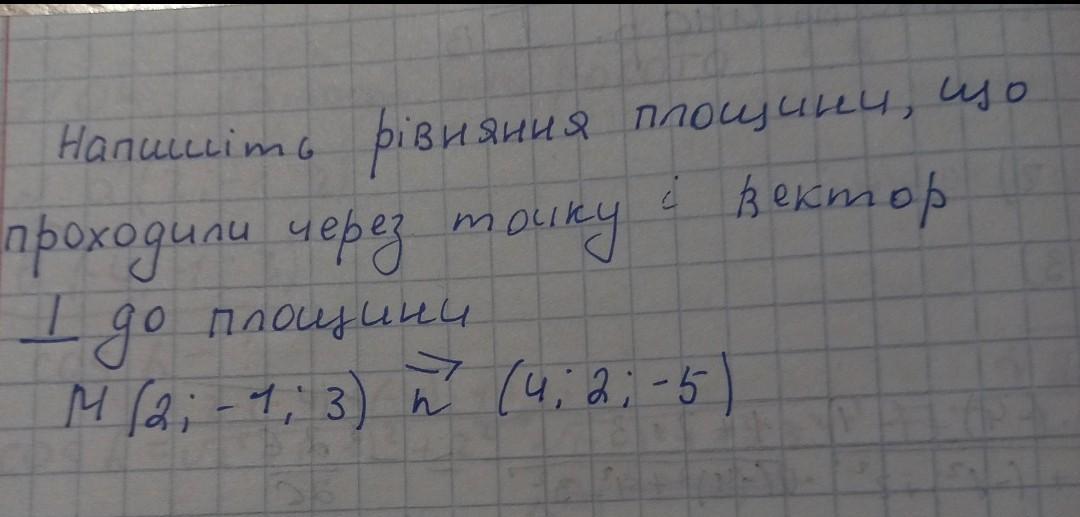 Напишіть рівняння площини, що
проходили через точку і вектор
⊥ до площини
M (2; -1; 3) n⃗ (4; 2; -5)